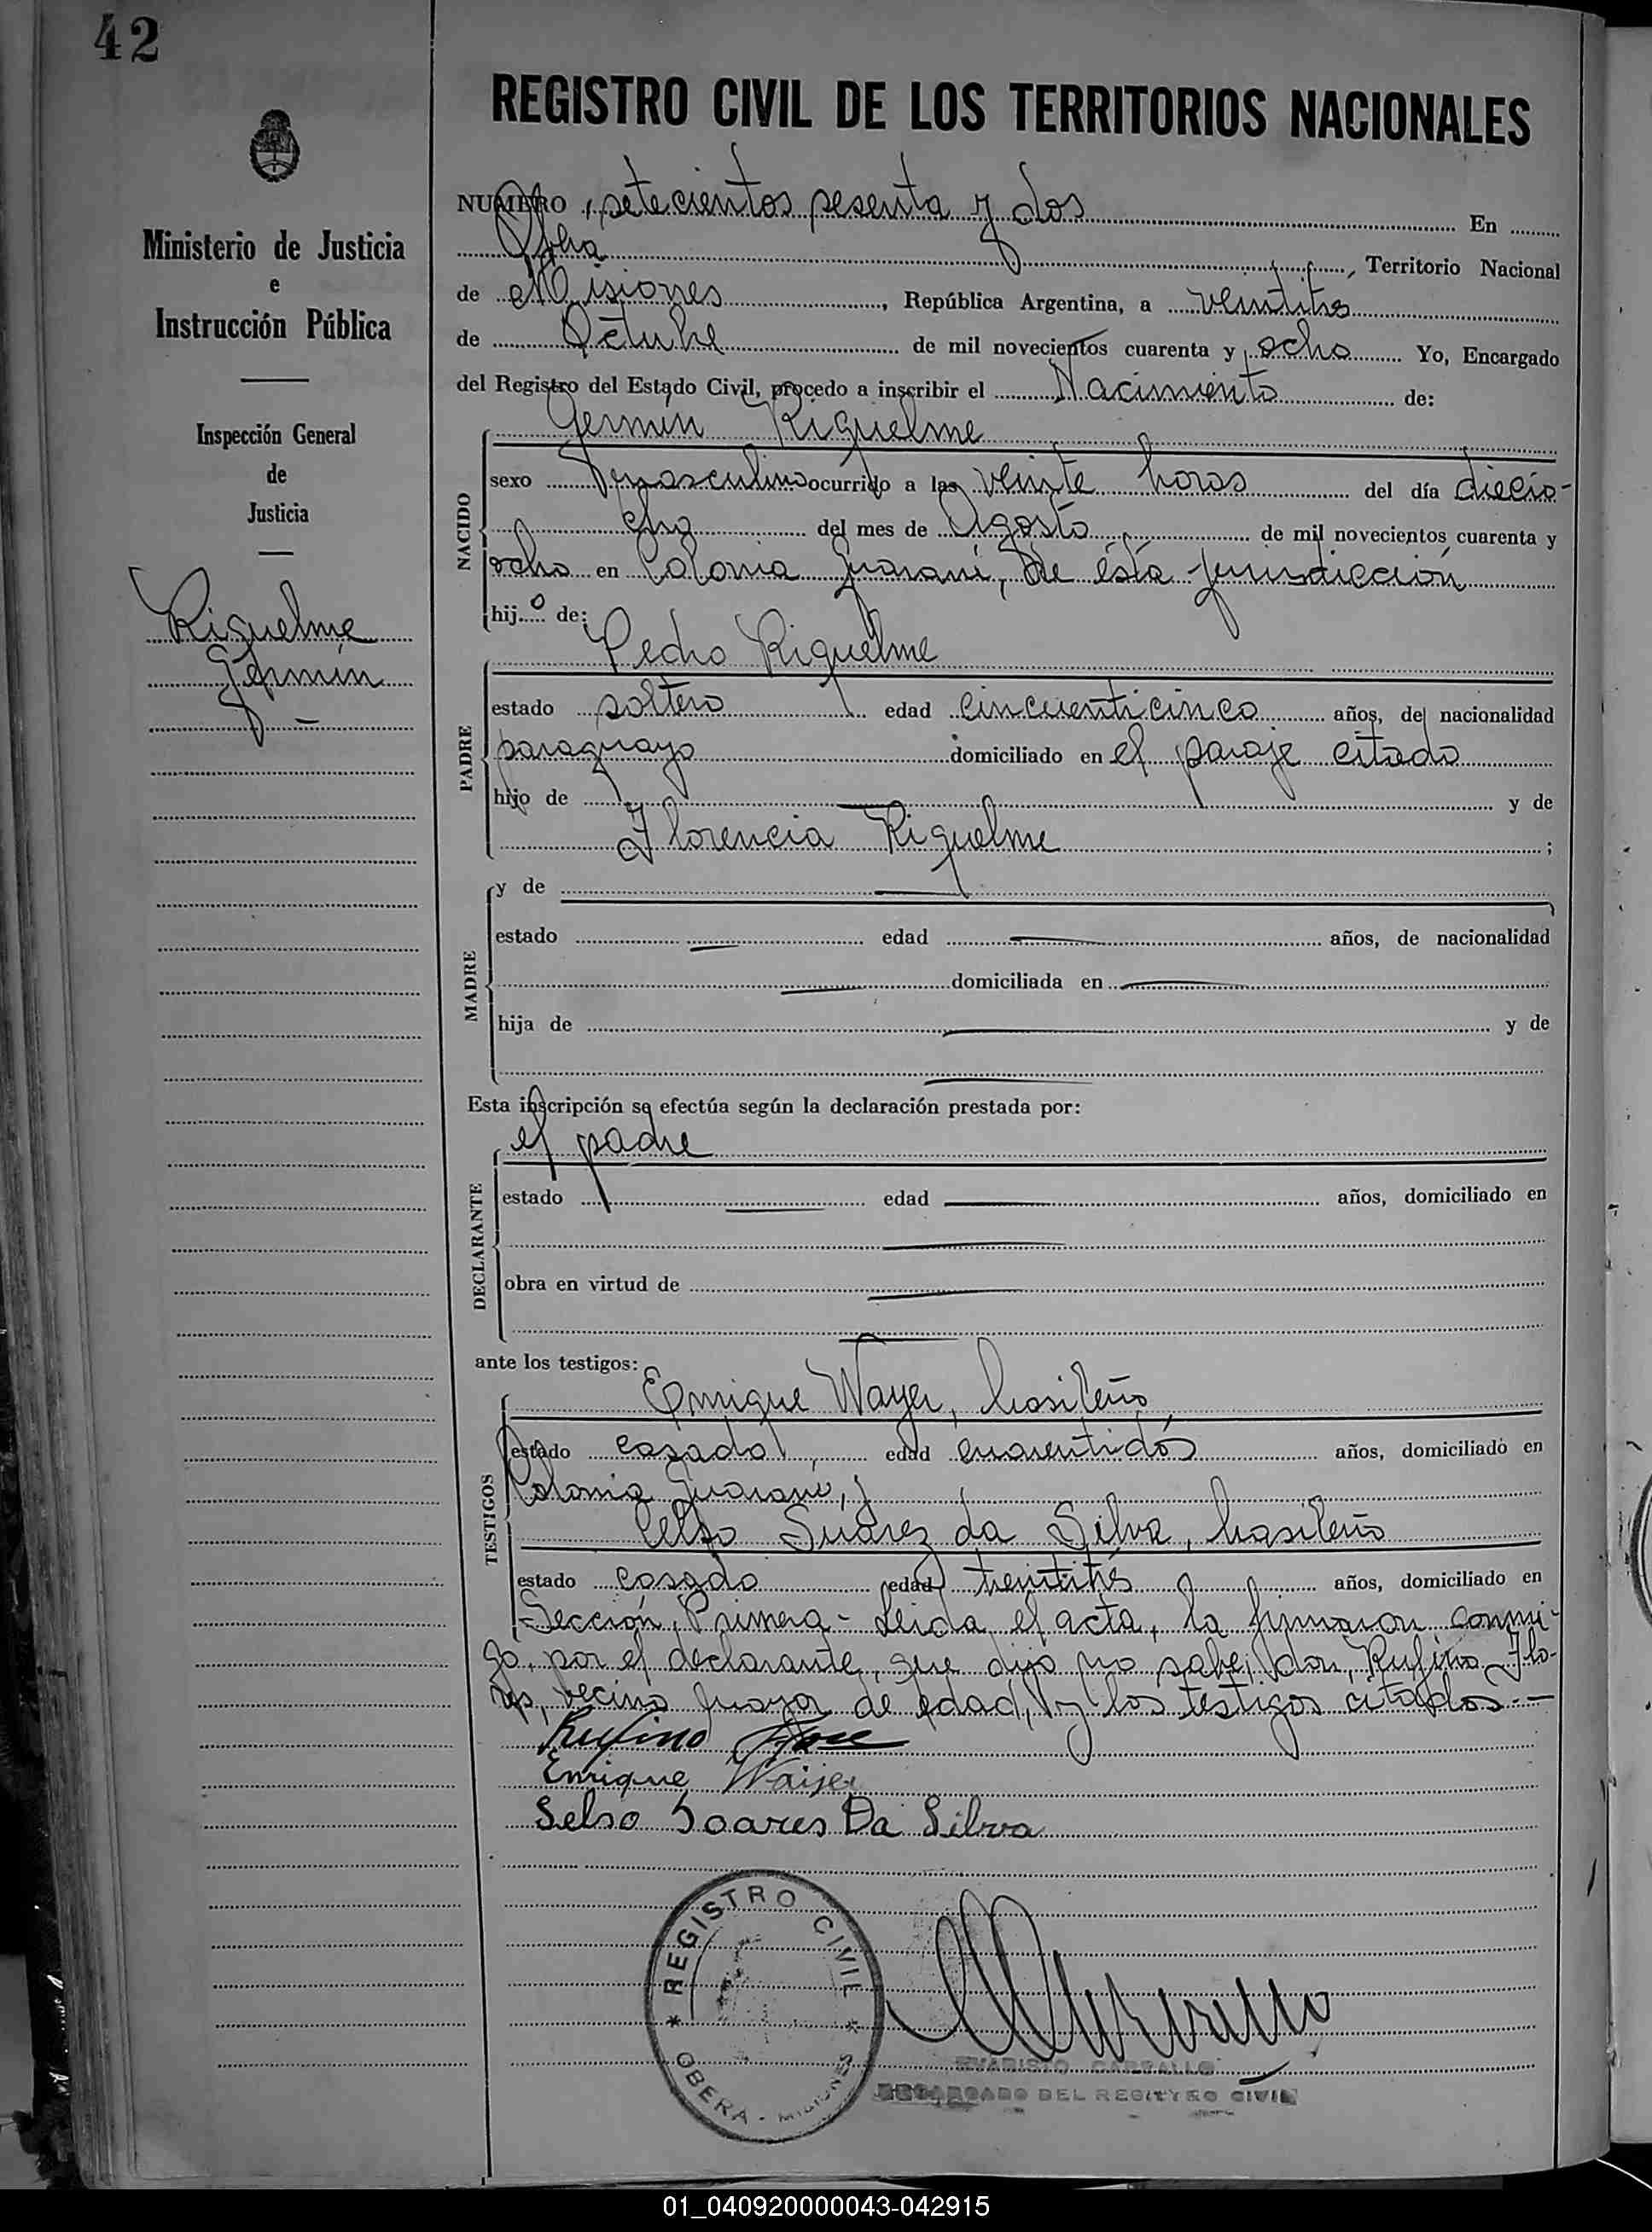 42
REGISTRO CIVIL DE LOS TERRITORIOS NACIONALES
Ministerio de Justicia
e
Instrucción Pública
Inspección General
de
Justicia
Riquelme
Germín
NUMERO setecientos sesenta y dos En
Territorio Nacional
de Misiones, República Argentina, a veintitrés
de Octubre de mil novecientos cuarenta y ocho Yo, Encargado
del Registro del Estado Civil, procedo a inscribir el Nacimiento de:
NACIDO
Germín Riquelme
sexo masculino ocurrido a las veinte horas del día diecio-
cho del mes de Agosto de mil novecientos cuarenta y
ocho en Colonia Guaraní, de ésta jurisdicción
hijo de:
PADRE
Pedro Riquelme
estado soltero edad cincuenticinco años, de nacionalidad
paraguayo domiciliado en el paraje citado
hijo de — y de
Florencia Riquelme ;
MADRE
y de —
estado — edad — años, de nacionalidad
— domiciliada en —
hija de — y de
—
Esta inscripción se efectúa según la declaración prestada por:
DECLARANTE
el padre
estado — edad — años, domiciliado en
—
obra en virtud de —
—
ante los testigos:
TESTIGOS
Enrique Wayer, brasileño
estado casado edad cuarentidós años, domiciliado en
Colonia Guaraní, y
Celso Suárez da Silva, brasileño
estado casado edad treintitrés años, domiciliado en
Sección Primera - Leida el acta, la firmaron conmi-
go, por el declarante, que dijo no saber, don Rufino Flo-
res, vecino mayor de edad, y los testigos citados.-
Rufino
Enrique Waijer
Selso Soares Da Silva
REGISTRO CIVIL
OBERA - MISIONES
EVARISTO CARBALLO
ENCARGADO DEL REGISTRO CIVIL
01_040920000043-042915